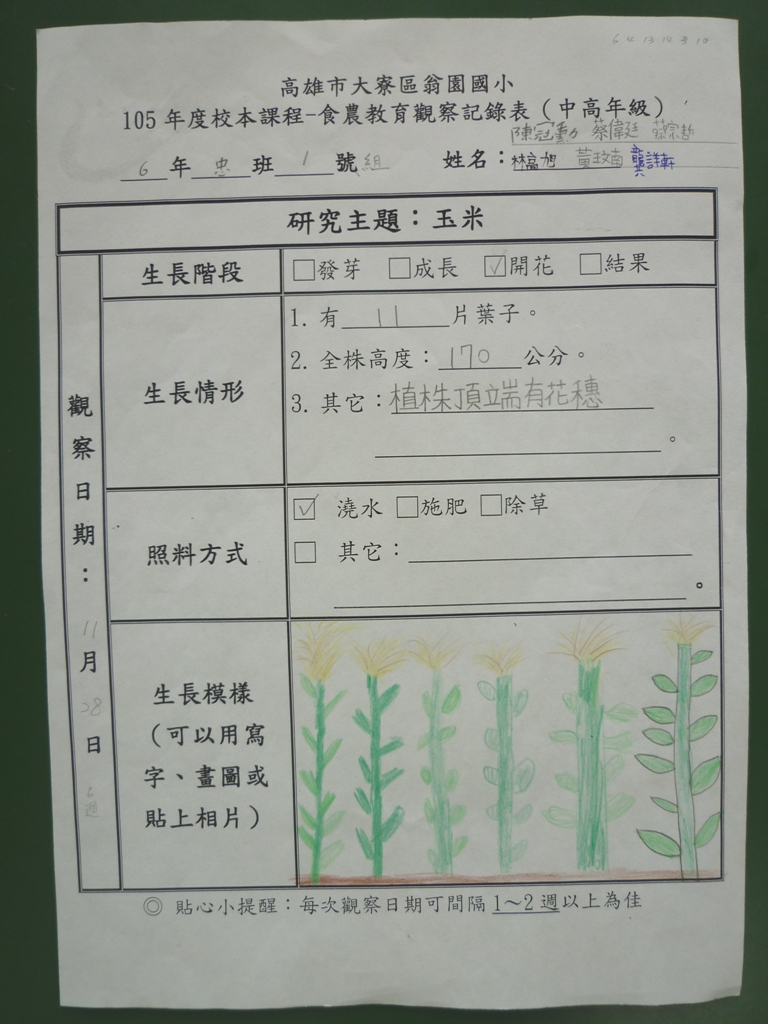 6 4 13 10 3 10
高雄市大寮區翁園國小
105 年度校本課程-食農教育觀察記錄表（中高年級）
陳冠勳 蔡偉廷
6 年 忠 班 1 號組 姓名：林高旭 黃玟南 龔詳軒
研究主題：玉米
觀察日期：11月28日 6週
生長階段 □發芽 □成長 ☑開花 □結果
生長情形
1. 有 11 片葉子。
2. 全株高度：170 公分。
3. 其它：植株頂端有花穗
。
照料方式
☑ 澆水 □施肥 □除草
□ 其它：
。
生長模樣
（可以用寫
字、畫圖或
貼上相片）
◎ 貼心小提醒：每次觀察日期可間隔 1～2 週以上為佳